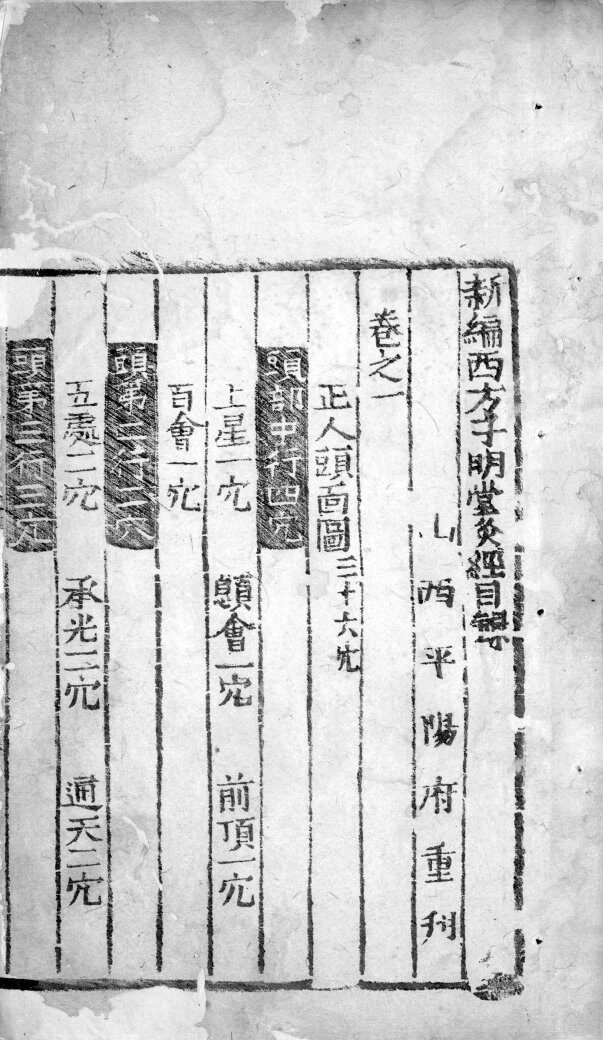 新編西方子明堂灸經目錄
山西平陽府重刋
卷之一
正人頭面圖三十六穴
頭部中行四穴
上星一穴 顖會一穴 前頂一穴
百會一穴
頭第二行三穴
五處二穴 承光二穴 通天二穴
頭第三行三穴